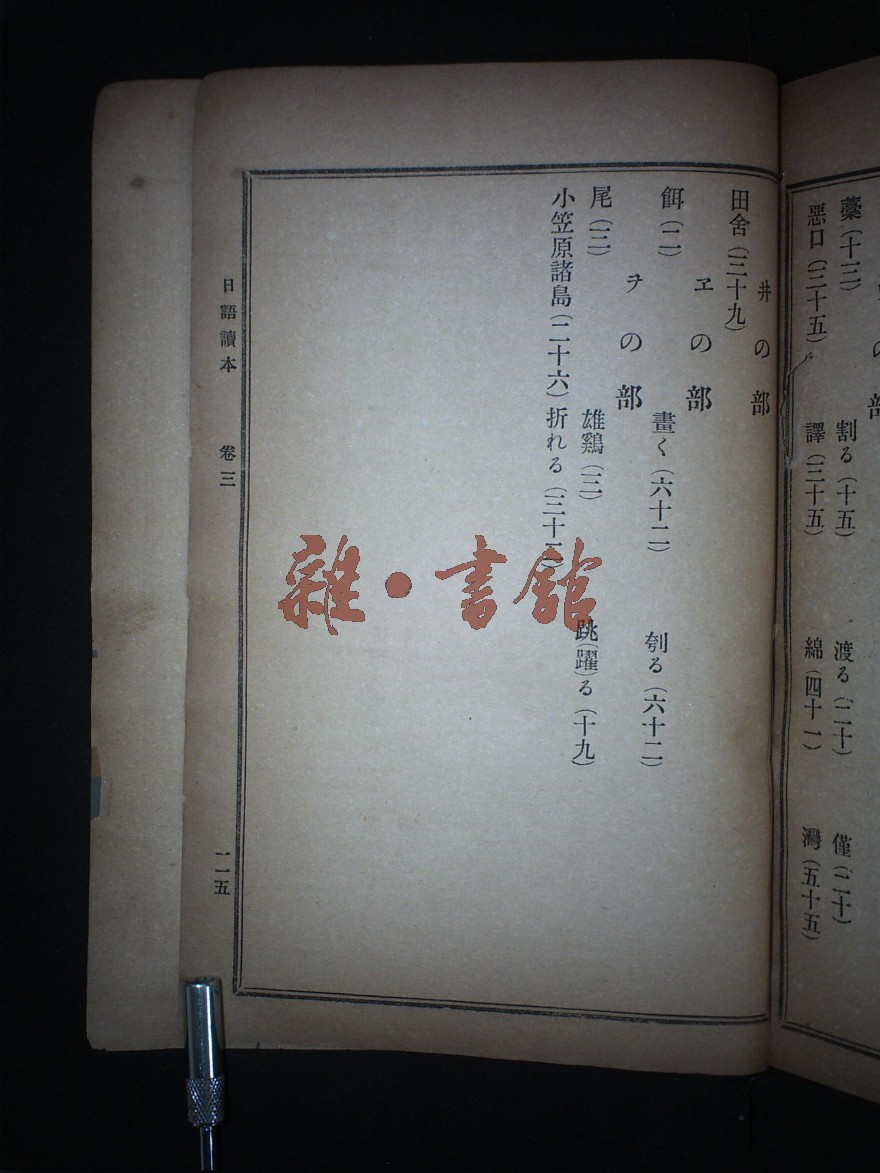 の部
藁（十三）　割る（十五）　渡る（二十）　僅（二十）
惡口（三十五）　譯（三十五）　綿（四十一）　灣（五十五）
井の部
田舍（三十九）
ヱの部
餌（二）　畫く（六十二）　刳る（六十二）
ヲの部
尾（三）　雄鷄（三）　跳（躍）る（十九）
小笠原諸島（二十六）　折れる（三十
日語讀本　卷三　二一五
雜·書館